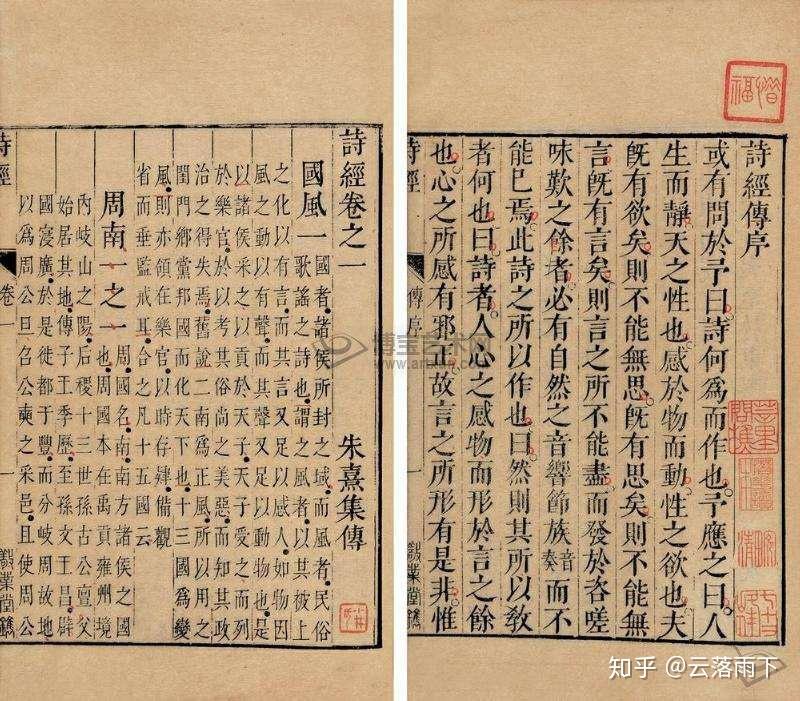 詩經傳序
或有問於予曰詩何爲而作也予應之曰人
生而靜天之性也感於物而動性之欲也夫
旣有欲矣則不能無思旣有思矣則不能無
言旣有言矣則言之所不能盡而發於咨嗟
咏歎之餘者必有自然之音響節族音奏而不
能已焉此詩之所以作也曰然則其所以敎
者何也曰詩者人心之感物而形於言之餘
也心之所感有邪正故言之所形有是非惟
詩經
傳序
一
詩經卷之一
朱熹集傳
國風一
國者諸侯所封之域而風者民俗
歌謠之詩也謂之風者以其被上
之化以有言而其言又足以感人如物因
風之動以有聲而其聲又足以動物也是
以諸侯采之以貢於天子天子受之而列
於樂官於以考其俗尚之美惡而知其政
治之得失焉舊說二南爲正風所以用之
閨門鄉黨邦國而化天下也十三國爲變
風則亦領在樂官以時存肄備觀
省而垂監戒耳合之凡十五國云
周南一之一
周國名南南方諸侯之國
也周國本在禹貢雍州境
內岐山之陽后稷十三世孫古公亶父
始居其地傳子王季歷至孫文王昌辟
國寖廣於是徙都于豐而分岐周故地
以爲周公旦召公奭之采邑且使周公
詩經
卷一
一
知乎 @云落雨下